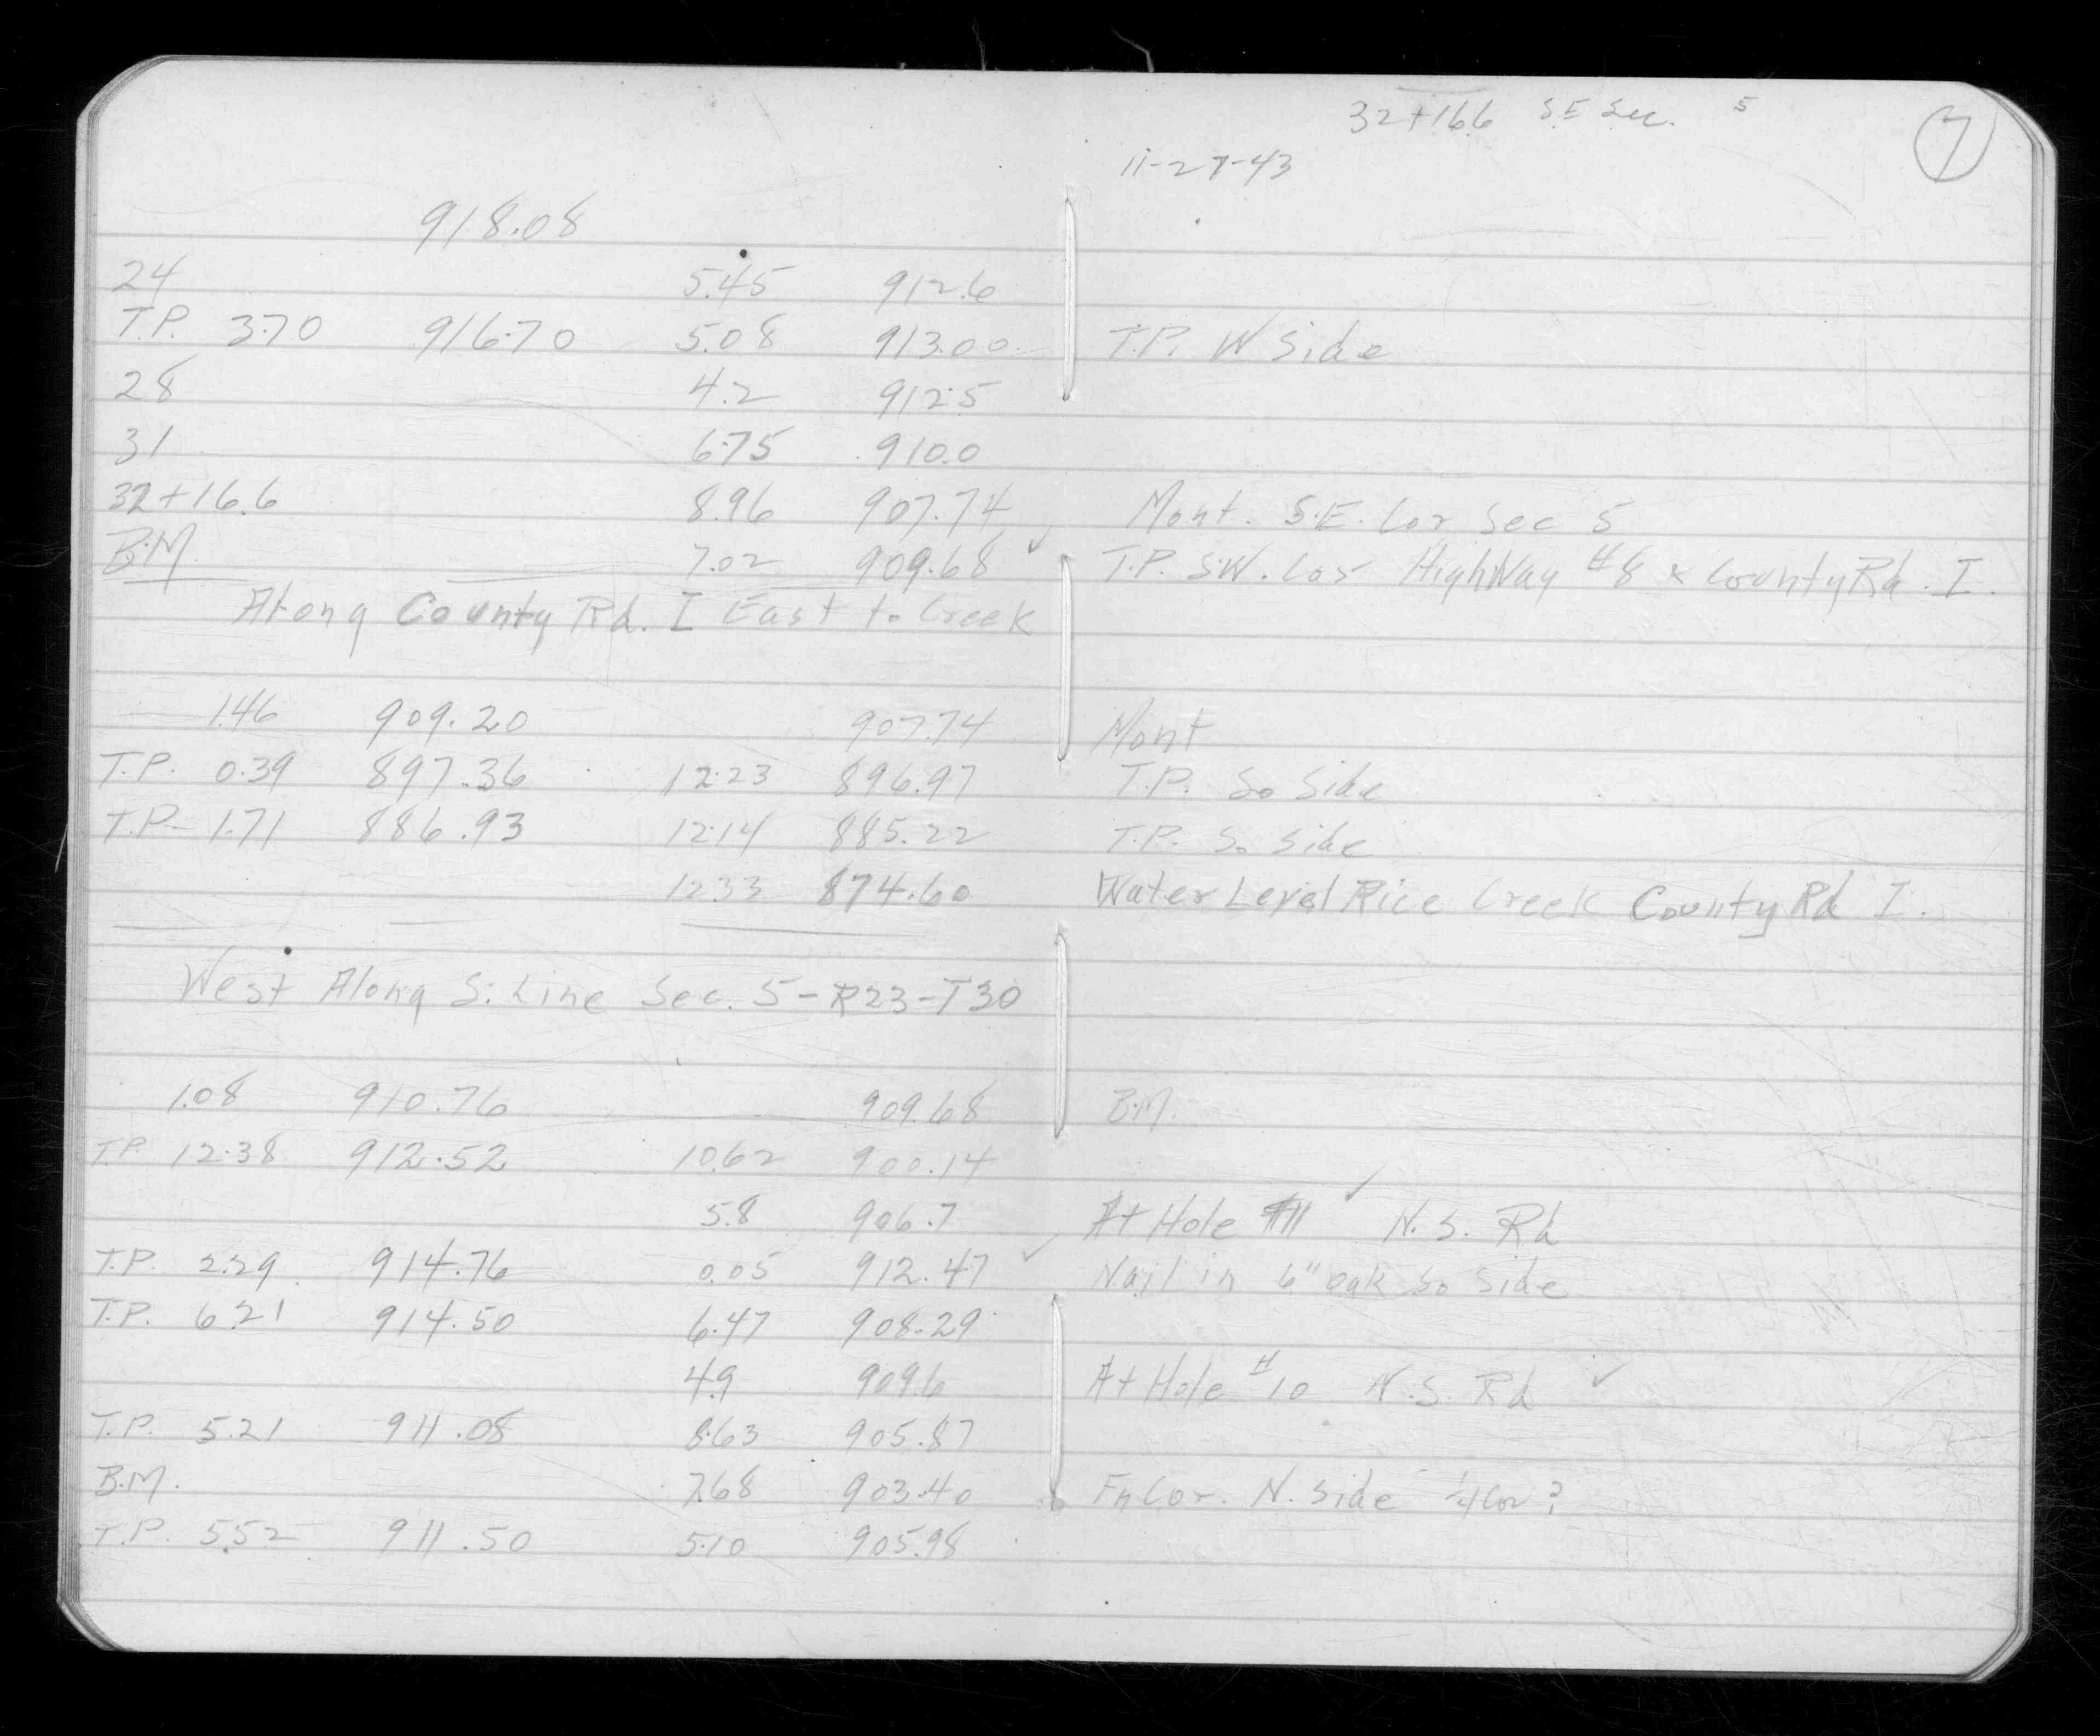 32+16.6 S.E Sec. 5
7
11-27-43
918.08
24 5.45 912.6
T.P. 3.70 916.70 5.08 913.00 T.P. W Side
28 4.2 912.5
31 6.75 910.0
32+16.6 8.96 907.74 Mont. S.E. Cor Sec 5
B.M. 7.02 909.68 ✓ T.P. S.W. Cor HighWay #8 x County Rd. I.
Along County Rd. I East to Creek
1.46 909.20 907.74 Mont
T.P. 0.39 897.36 12.23 896.97 T.P. So Side
T.P. 1.71 886.93 12.14 885.22 T.P. So Side
12.33 874.60 Water Level Rice Creek County Rd I.
West Along S. Line Sec. 5-R23-T30
1.08 910.76 909.68 B.M.
T.P. 12.38 912.52 10.62 900.14
5.8 906.7 At Hole #11 ✓ N.S. Rd
T.P. 2.29 914.76 0.05 912.47 ✓ Nail in 6" oak So Side
T.P. 6.21 914.50 6.47 908.29
4.9 909.6 At Hole #10 N.S. Rd ✓
T.P. 5.21 911.08 8.63 905.87
B.M. 7.68 903.40 Fn Cor. N. Side 1/4 Cor ?
T.P. 5.52 911.50 5.10 905.98